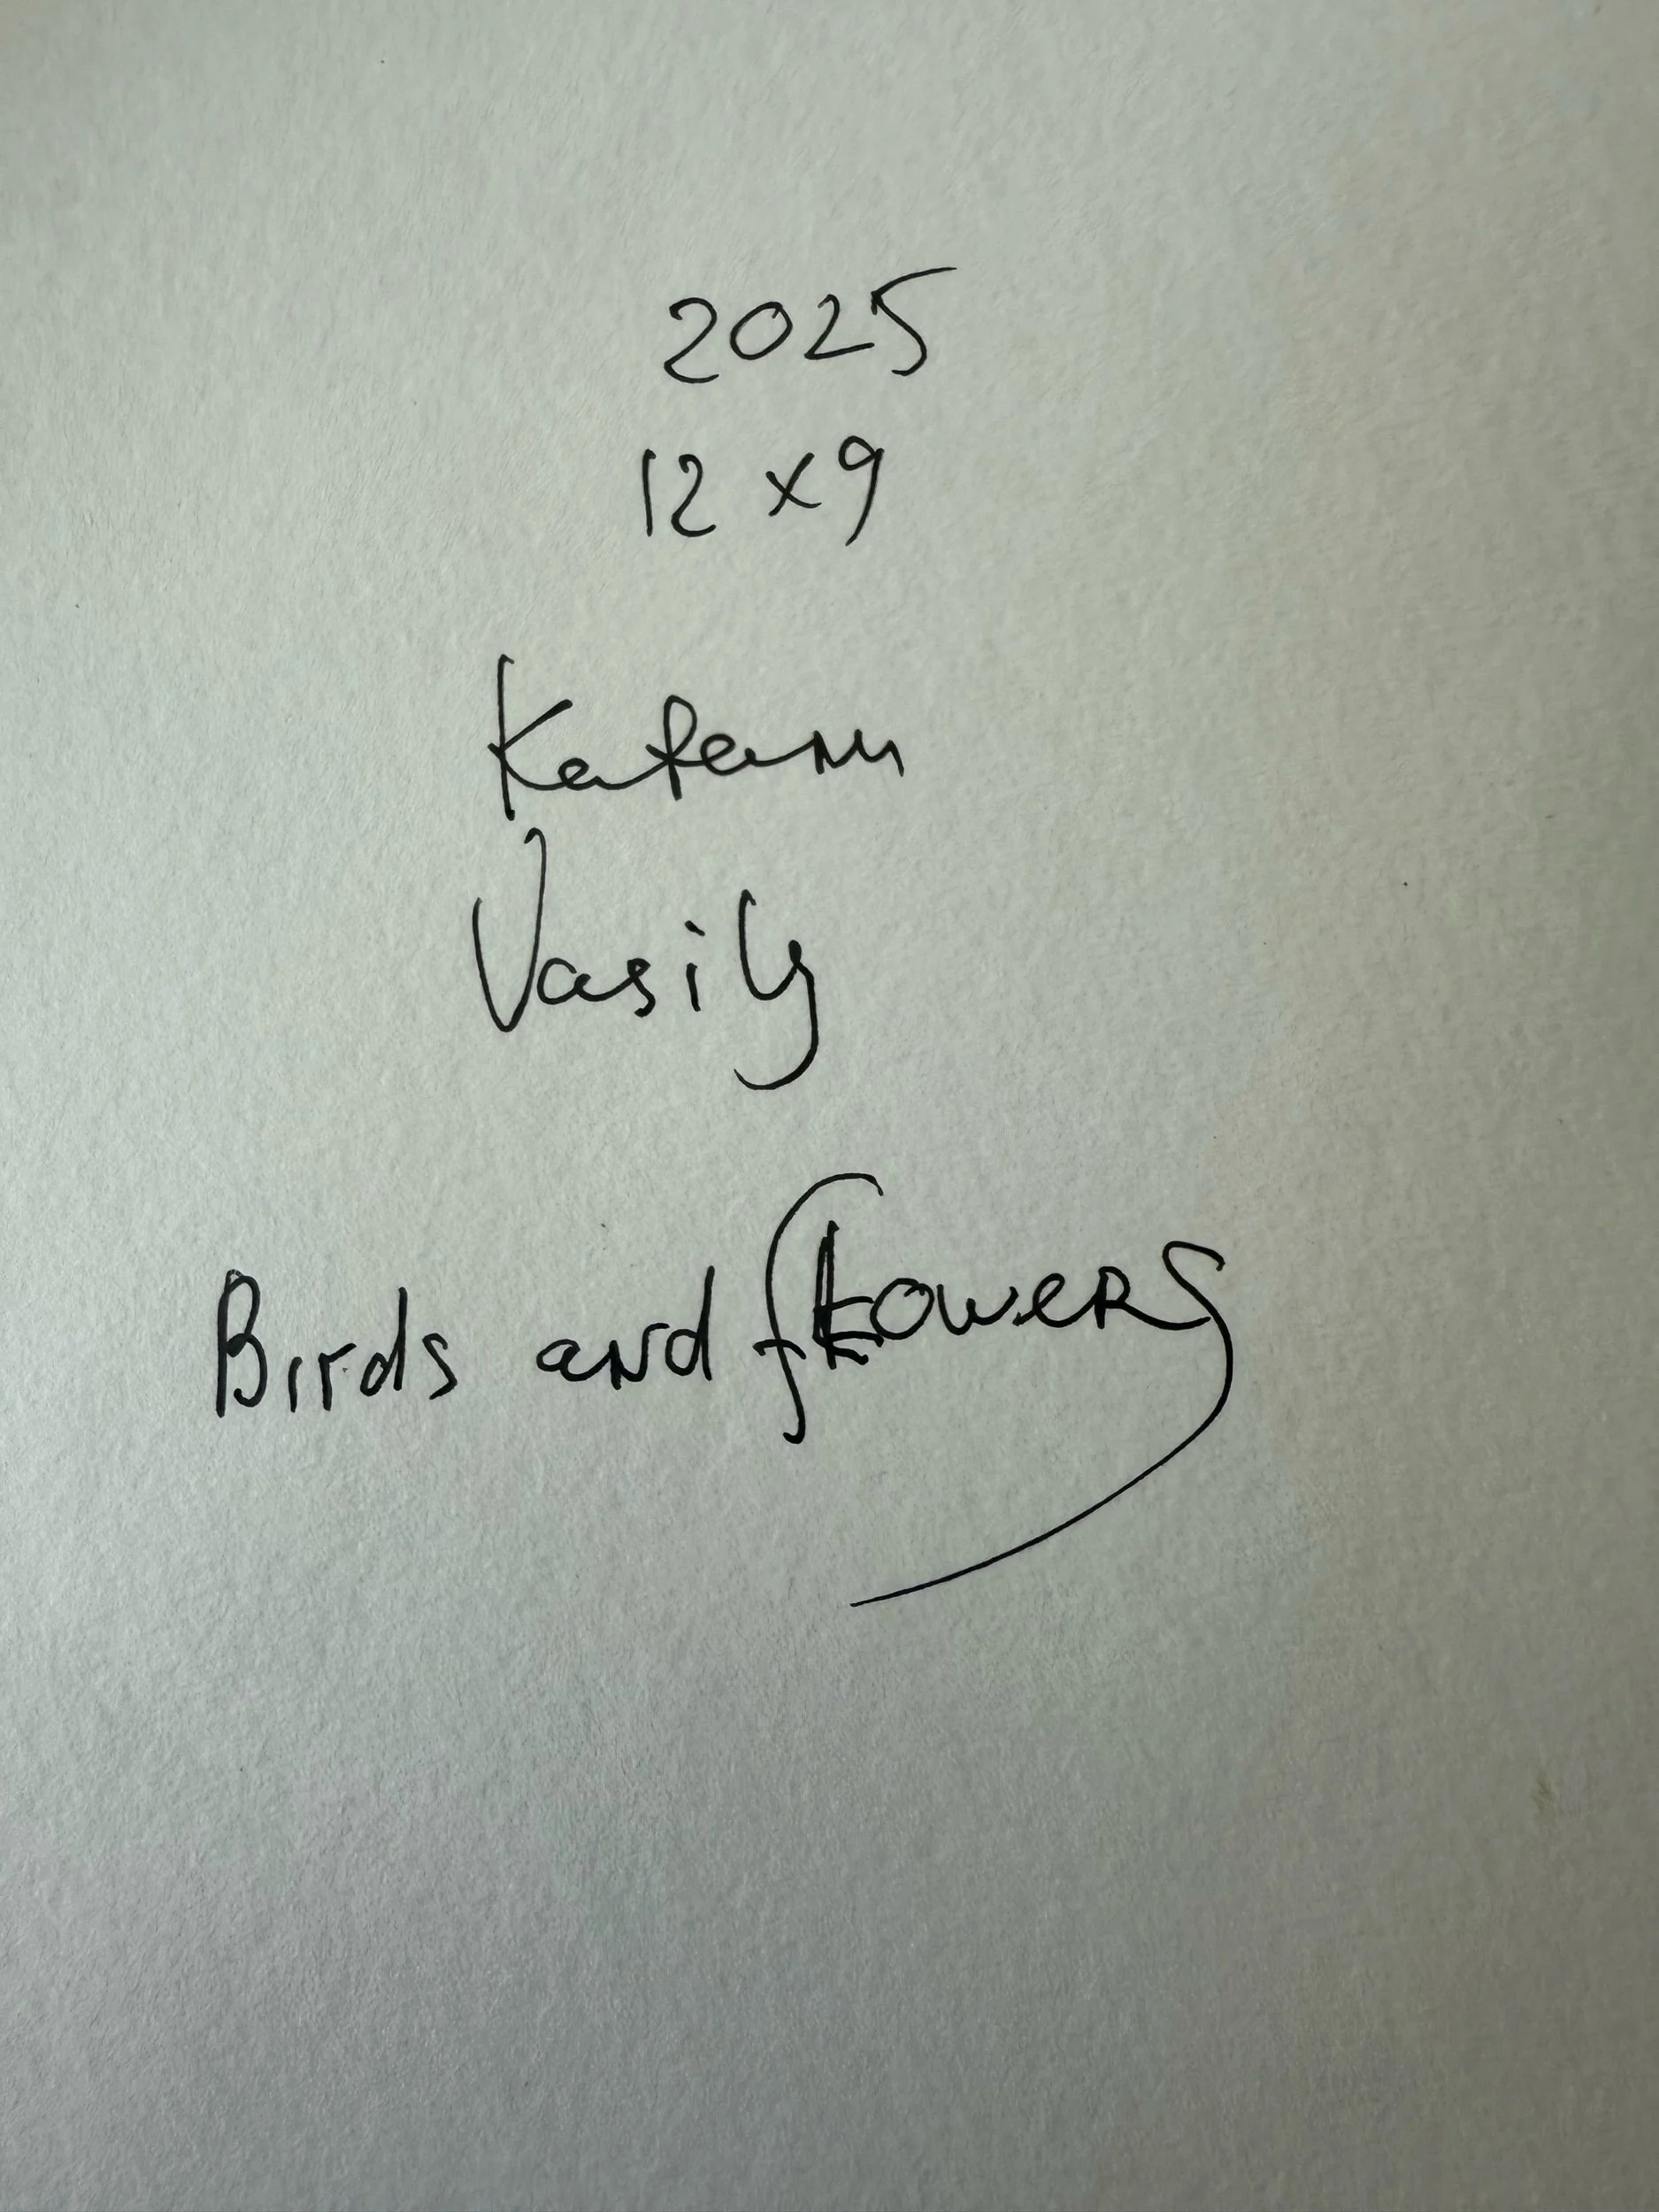 2025
12 x 9
Vasily
Birds and flowers